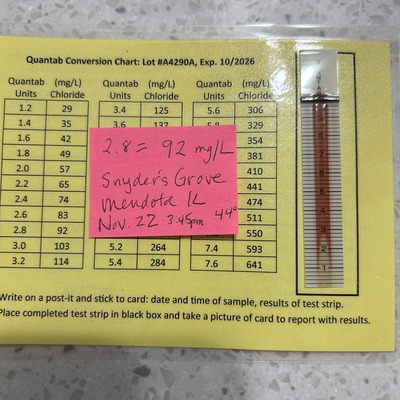 Quantab Conversion Chart: Lot #A4290A, Exp. 10/2026
Quantab (mg/L) Quantab (mg/L) Quantab (mg/L)
Units Chloride Units Chloride Units Chloride
1.2 29 3.4 125 5.6 306
1.4 35 3.6 137 5.8 329
1.6 42 354
1.8 49 381
2.0 57 410
2.2 65 441
2.4 74 474
2.6 83 511
2.8 92 550
3.0 103 5.2 264 7.4 593
3.2 114 5.4 284 7.6 641
2.8 = 92 mg/L
Snyder's Grove
Mendota IL
Nov. 22 3:45pm 44°
Write on a post-it and stick to card: date and time of sample, results of test strip.
Place completed test strip in black box and take a picture of card to report with results.